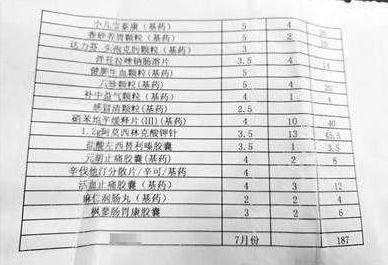 小儿宝泰康（基药） 5 4
香砂养胃颗粒（基药） 5 2
达力芬 头孢克肟颗粒（基药） 3
泮托拉唑钠肠溶片 3.5 4 14
健脾生血颗粒（基药） 5
六味颗粒（基药） 5 4
补中益气颗粒（基药） 1 1
感冒清颗粒(基药) 2.5
硝苯地平缓释片(II)(基药) 4 10 40
1.2g阿莫西林克酸钾针 3.5 13 45.5
盐酸左西替利嗪胶囊 3.5 1 3.5
元胡止痛胶囊(基药) 4 2 8
辛伐他汀分散片/辛可/基药 4
活血止痛胶囊(基药) 4 3 12
麻仁润肠丸(基药) 2 2 4
枫蓼肠胃康胶囊 3 2 6
7月份 187